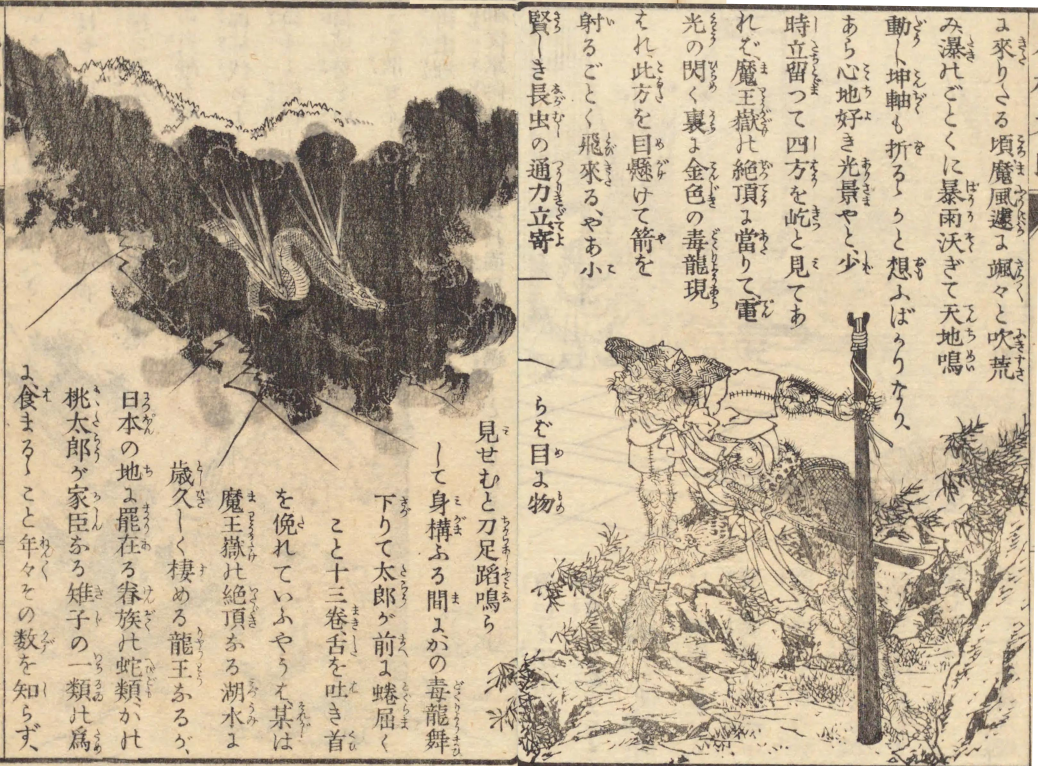 に來りたる頃魔風遽に颯々と吹荒
み瀑のごとくに暴雨沃ぎて天地鳴
動し坤軸も折るゝかと想ふばかりなり、
あら心地好き光景やと、少
時立留つて四方を屹と見てあ
れば、魔王嶽の絶頂に當りて電
光の閃く裏に金色の毒龍現
はれ此方を目懸けて箭を
射るごとく飛來る、やあ小
賢しき長虫の通力立、寄
らば目に物
見せむと刀足蹈鳴ら
して身構ふる間にかの毒龍舞
下りて太郎が前に蜷屈く
こと十三卷、舌を吐き首
を俛れていふやうは、某は
魔王嶽の絶頂なる湖水に
歳久しく棲める龍王なるが、
日本の地に罷在る眷族の蛇類、かの
桃太郎が家臣なる雉子の一類の爲
に食まるゝこと年々その数を知らず、